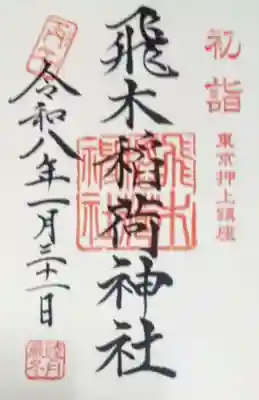 初詣
東京押上鎮座
飛木稲荷神社
飛木稲荷神社
令和八年一月三十一日